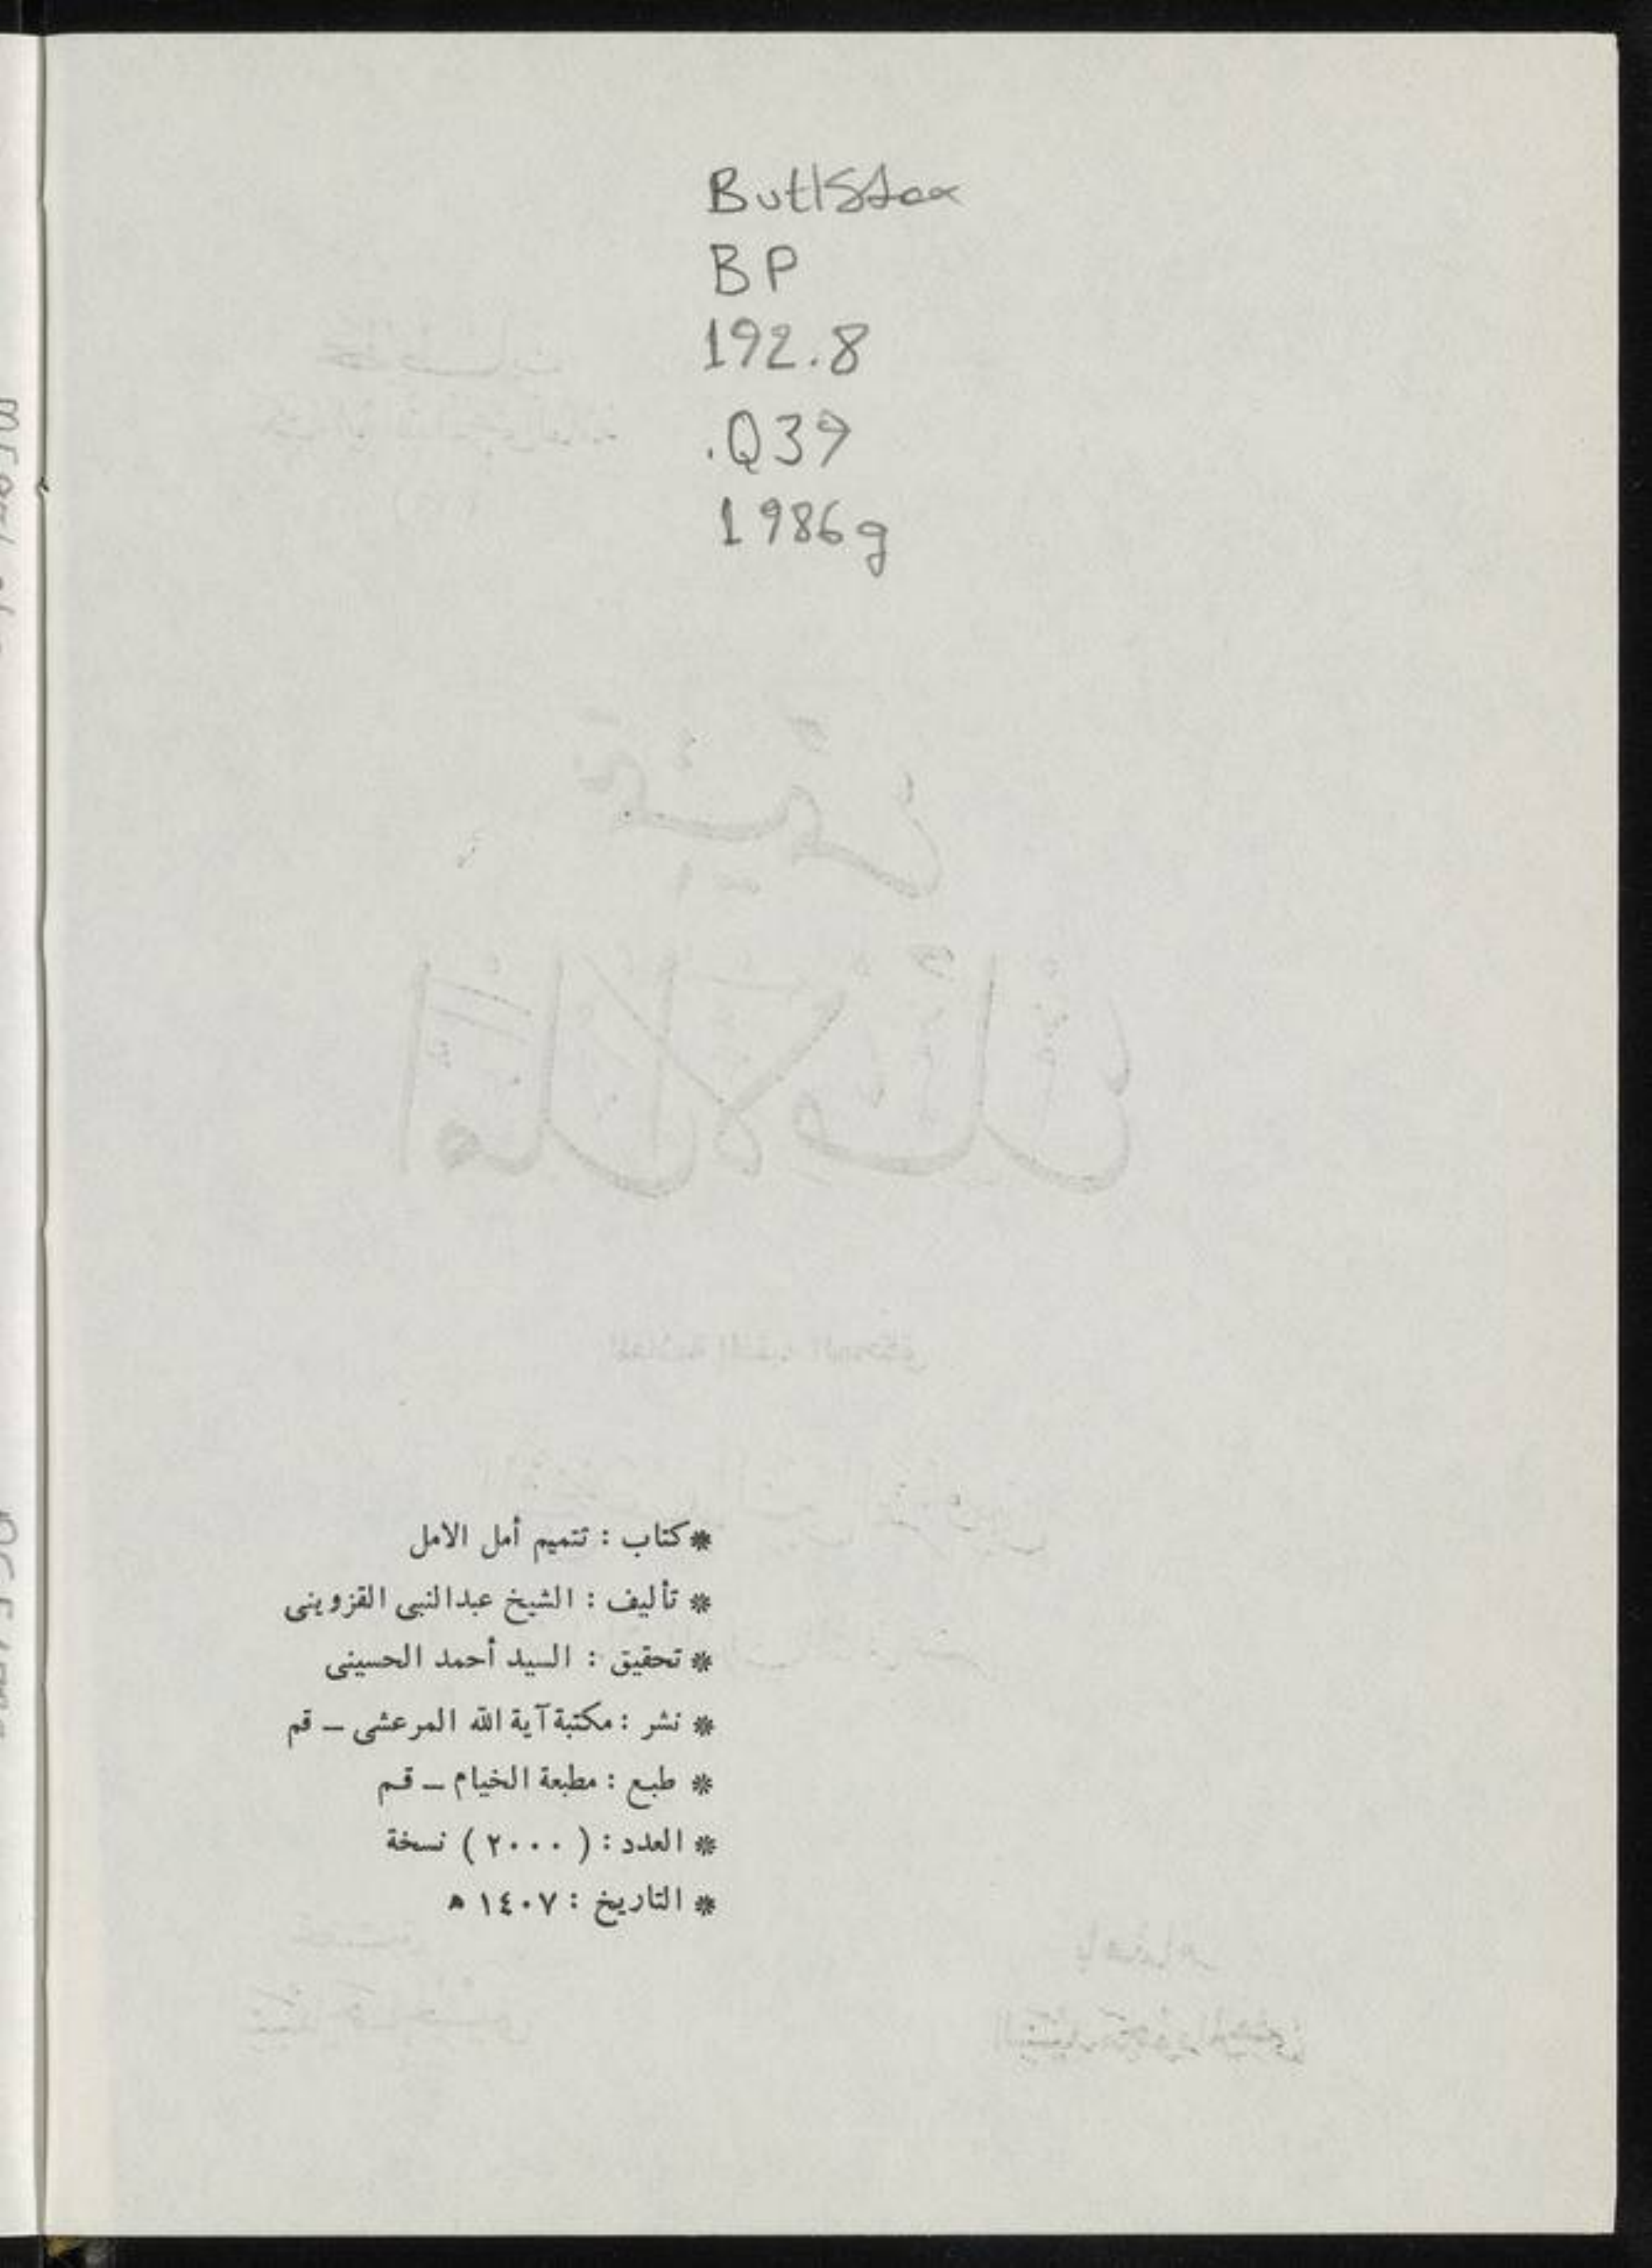 ButlStax
BP
192.8
.Q39
1986g
* كتاب : تتميم أمل الامل
* تأليف : الشيخ عبدالنبى القزوينى
* تحقيق : السيد أحمد الحسينى
* نشر : مكتبة آية الله المرعشى ـ قم
* طبع : مطبعة الخيام ـ قم
* العدد : ( ٢٠٠٠ ) نسخة
* التاريخ : ١٤٠٧ ه